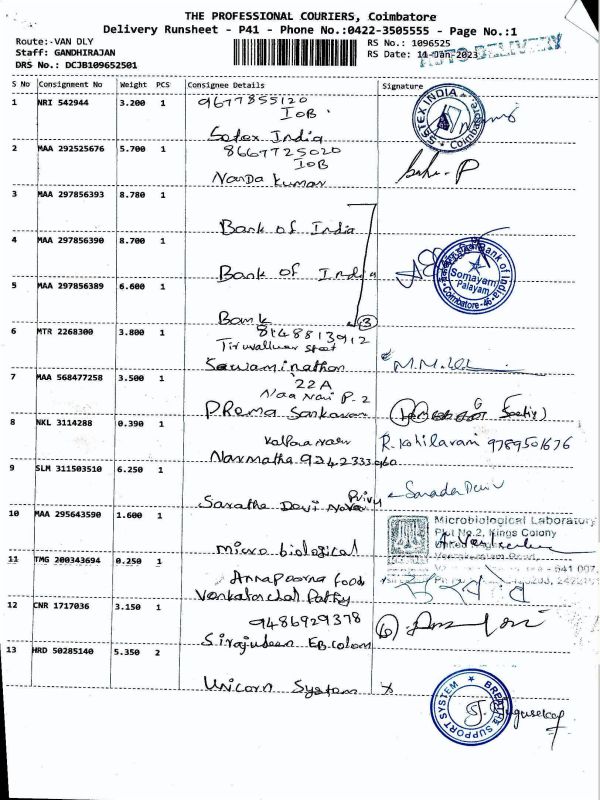 THE PROFESSIONAL COURIERS, Coimbatore
Delivery Runsheet - P41 - Phone No.:0422-3505555 - Page No.:1
Route:-VAN DLY
Staff: GANDHIRAJAN
DRS No.: DCJB109652501
RS No.: 1096525
RS Date: 11-Jan-2023
AUTO DELIVERY
S No Consignment No Weight PCS Consignee Details Signature
1 NRI 542944 3.200 1 9677855120
IOB
Satex India
SATEX INDIA
Coimbatore
2 MAA 292525676 5.700 1 8667725020
IOB
Nanda Kumar
3 MAA 297856393 8.780 1
Bank of India
4 MAA 297856390 8.700 1
Bank of India
Bank of India
Somayam
Palayam
Coimbatore-46
5 MAA 297856389 6.600 1
Bank
3
6 MTR 2268300 3.800 1 8148813912
Tiruvalluvar Street
Sawaminathan
7 MAA 568477258 3.500 1 22A
P-2
P.Rema Sankaran
8 NKL 3114288 0.390 1
Narmatha 9242333960
R. Kohilavani 9789501676
9 SLM 311503510 6.250 1
Saratha Devi
Sarada Devi
10 MAA 295643590 1.600 1
Micro biological
Microbiological Laboratory
Plot No.2, Kings Colony
11 TMG 200343694 0.250 1
Annapoorna foods
12 CNR 1717036 3.150 1 9486929378
Sirajudeen EB.Colony
13 HRD 50285140 5.350 2
Unicorn System x
BREATHE SUPPORT SYSTEM